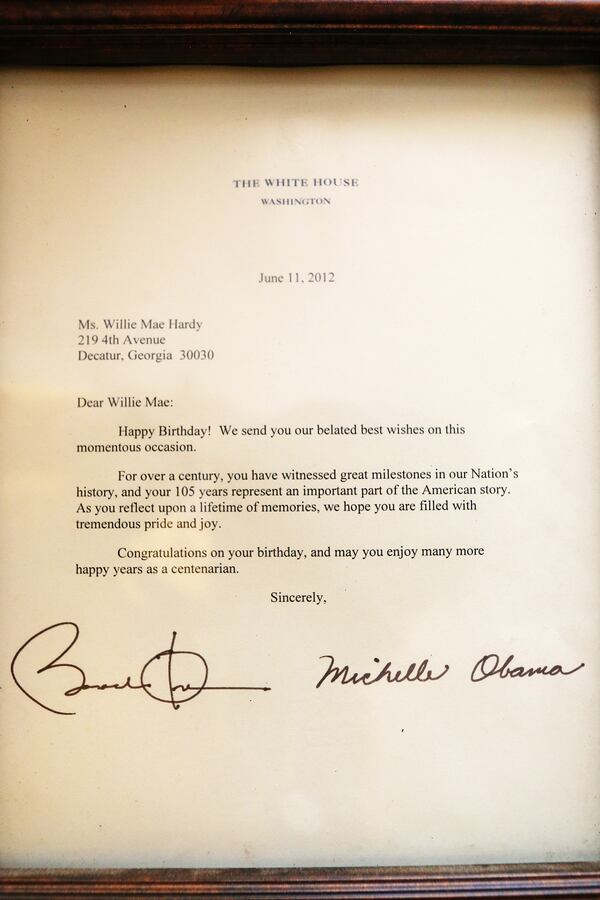 THE WHITE HOUSE
WASHINGTON
June 11, 2012
Ms. Willie Mae Hardy
219 4th Avenue
Decatur, Georgia 30030
Dear Willie Mae:
Happy Birthday! We send you our belated best wishes on this
momentous occasion.
For over a century, you have witnessed great milestones in our Nation's
history, and your 105 years represent an important part of the American story.
As you reflect upon a lifetime of memories, we hope you are filled with
tremendous pride and joy.
Congratulations on your birthday, and may you enjoy many more
happy years as a centenarian.
Sincerely,
Michelle Obama